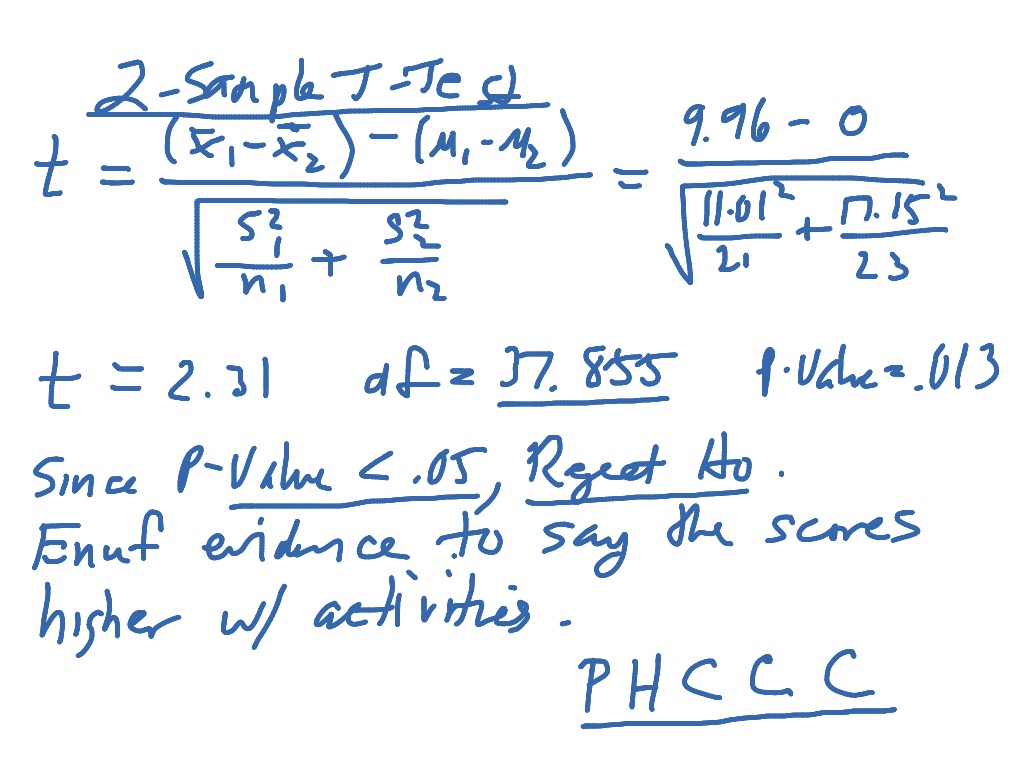 2-Sample T-Test
t = ((x̄₁ - x̄₂) - (μ₁ - μ₂)) / √(s₁²/n₁ + s₂²/n₂) = (9.96 - 0) / √(11.01²/21 + 17.15²/23)
t = 2.31 df = 37.855 P-Value = .013
Since P-Value < .05, Reject Ho.
Enuf evidence to say the scores
higher w/ activities.
PHCCC